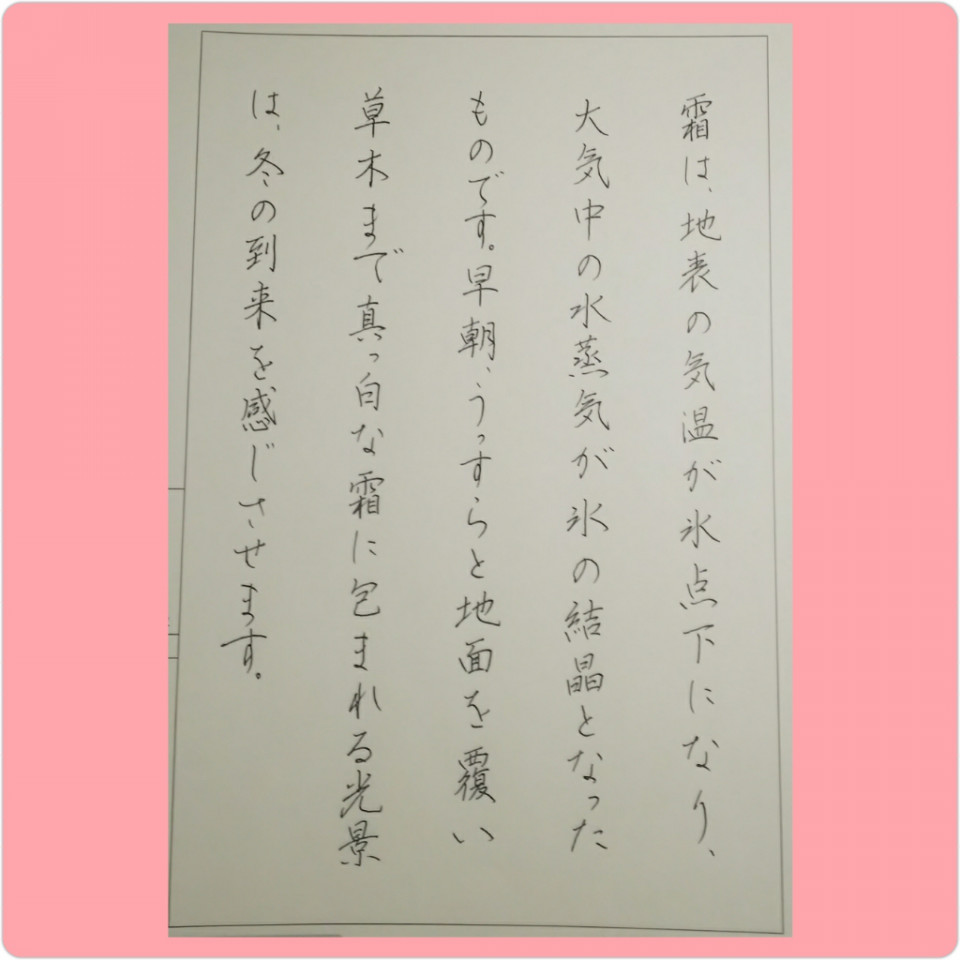 霜は、地表の気温が氷点下になり、
大気中の水蒸気が氷の結晶となった
ものです。早朝、うっすらと地面を覆い
草木まで真っ白な霜に包まれる光景
は、冬の到来を感じさせます。